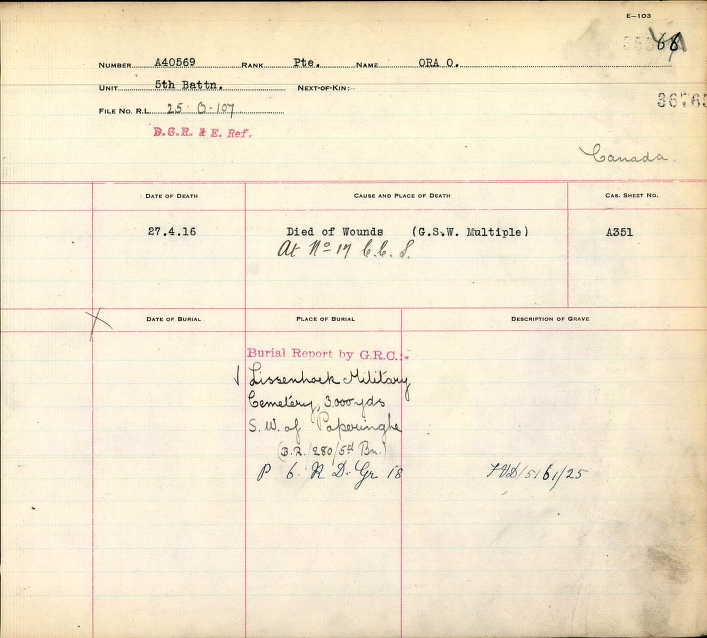 E-103
68
NUMBER A40569 RANK Pte. NAME ORA O.
UNIT 5th Battn. NEXT-OF-KIN:
3676
FILE NO. R.L. 25-O-107
D.G.R. & E. Ref.
Canada.
DATE OF DEATH CAUSE AND PLACE OF DEATH CAS. SHEET NO.
27.4.16 Died of Wounds (G.S.W. Multiple) A351
At No 17 C.C.S.
DATE OF BURIAL PLACE OF BURIAL DESCRIPTION OF GRAVE
Burial Report by G.R.C.:-
Lissenhoek Military
Cemetery, 3000 yds
S.W. of Poperinghe
(B.R. 280/5th Bn.)
P 6. R D. Gr 18